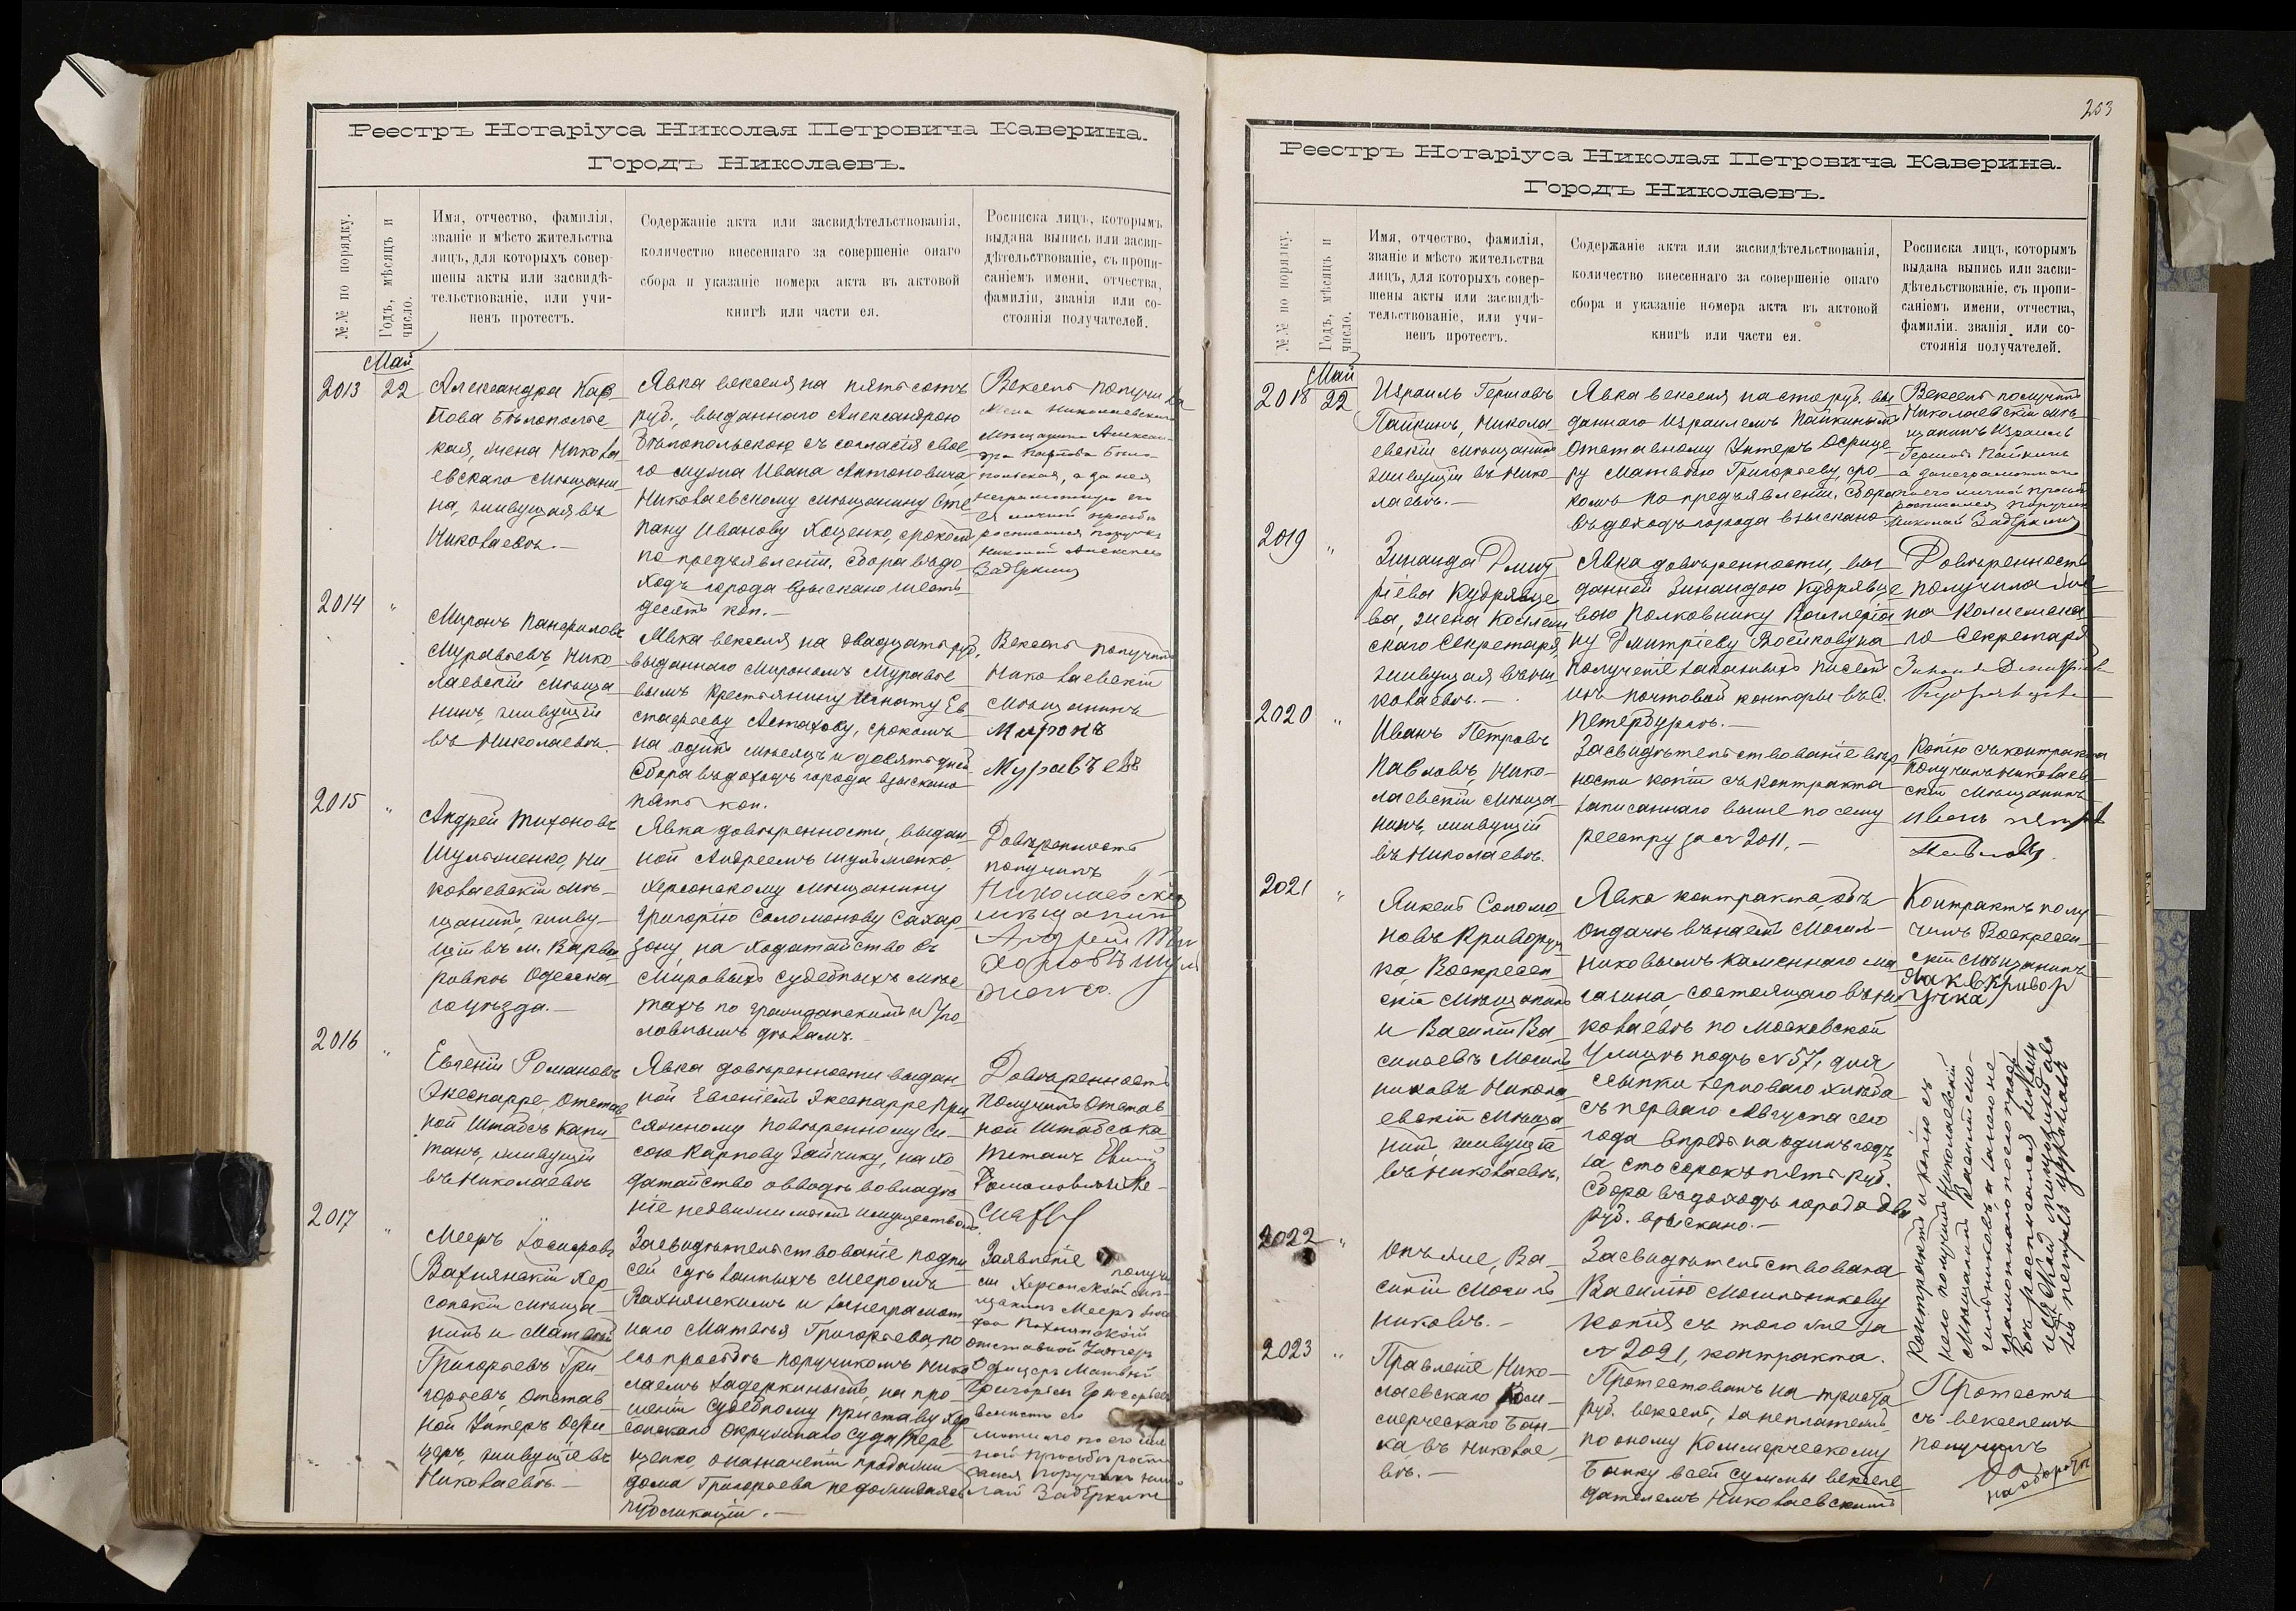 Реестръ Нотаріуса Николая Петровича Каверина.
Городъ Николаевъ.
№№ по порядку.
Годъ, мѣсяцъ и
число.
Имя, отчество, фамилія,
званіе и мѣсто жительства
лицъ, для которыхъ совер-
шены акты или засвидѣ-
тельствованіе, или учи-
ненъ протестъ.
Содержаніе акта или засвидѣтельствованія,
количество внесеннаго за совершеніе онаго
сбора и указаніе номера акта въ актовой
книгѣ или части ея.
Росписка лицъ, которымъ
выдана выпись или засви-
дѣтельствованіе, съ пропи-
саніемъ имени, отчества,
фамиліи, званія или со-
стоянія получателей.
Май
2013
22
Александра Кар-
пова Бѣлополь-
ская, жена Никола-
евскаго мѣщани-
на, живущая въ
Николаевѣ.—
Явка векселя на пятьсотъ
руб., выданнаго Александрою
Бѣлопольскою съ согласія свое-
го мужа Ивана Антоновича
Николаевскому мѣщанину Сте-
пану Иванову Хоценко, срокомъ
по предъявленіи. Сбора въ до-
ходъ города взыскано шесть-
десятъ коп.—
Вексель получила
жена Николаевскаго
мѣщанина Алексан-
дра Карпова Бѣло-
польская, а за нея
неграмотную по
ея личной просьбѣ
росписался поручикъ
Николай Алексѣевъ
Задеркинъ
2014
"
Миронъ Панфиловъ
Муравьевъ, Нико-
лаевскій мѣща-
нинъ, живущій
въ Николаевѣ.
Явка векселя на двадцать руб.
выданнаго Мирономъ Муравье-
вымъ крестьянину Игнату Ев-
стафьеву Астахову, срокомъ
на одинъ мѣсяцъ и девять дней
Сбора въ доходъ города взыскано
пять коп.
Вексель получилъ
Николаевскій
мѣщанинъ
Миронъ
Муравъевъ
2015
"
Андрей Тихоновъ
Шульменко, Ни-
колаевскій мѣ-
щанинъ, живу-
щій въ м. Варва-
ровкѣ Одесска-
го уѣзда.—
Явка довѣренности, выдан-
ной Андреемъ Шульменко,
Херсонскому мѣщанину
Григорію Соломонову Сахар-
зону, на ходатайство въ
Мировыхъ судебныхъ мѣс-
тахъ по гражданскимъ и уго-
ловнымъ дѣламъ.—
Довѣренность
получилъ
Николаевскій
мѣщанинъ
Андрей Ти
2016
"
Евгеній Романовъ
Экеспарре, Отстав-
ной Штабсъ-Капи-
танъ, живущій
въ Николаевѣ
Явка довѣренности выдан-
ной Евгеніемъ Экеспарре При-
сяжному повѣренному Си-
сою Карпову Зайчику, на хо-
датайство о вводѣ во владѣ-
ніе недвижимымъ имуществомъ.
Довѣренность
получилъ Отстав-
ной Штабсъ-ка-
питанъ Евгеній
Романовъ Эке-
спарре
2017
"
Мееръ Іосифовъ
Вахнянскій Хер-
сонскій мѣща-
нинъ и Матвѣй
Григорьевъ Гри-
горьевъ, Отстав-
ной Унтеръ Офи-
церъ, живущіе въ
Николаевѣ.—
Засвидѣтельствованіе подпи-
сей сдѣланныхъ Мееромъ
Вахнянскимъ и за неграмот-
наго Матвѣя Григорьева, по
его просьбѣ поручикомъ Нико-
лаемъ Задеркинымъ, на про-
шеніи судебному приставу Хер-
сонскаго окружнаго суда Тере-
щенко, о назначеніи продажи
дома Григорьева не дожидаясь
публикаціи.—
Заявленіе получи-
ли Херсонскій мѣ-
щанинъ Мееръ Іоси-
фов Вахнянскій
отставной Унтеръ
Офицеръ Матвѣй
Григорьев Григорьевъ
203
Реестръ Нотаріуса Николая Петровича Каверина.
Городъ Николаевъ.
№№ по порядку.
Годъ, мѣсяцъ и
число.
Имя, отчество, фамилія,
званіе и мѣсто жительства
лицъ, для которыхъ совер-
шены акты или засвидѣ-
тельствованіе, или учи-
ненъ протестъ.
Содержаніе акта или засвидѣтельствованія,
количество внесеннаго за совершеніе онаго
сбора и указаніе номера акта въ актовой
книгѣ или части ея.
Росписка лицъ, которымъ
выдана выпись или засви-
дѣтельствованіе, съ пропи-
саніемъ имени, отчества,
фамиліи, званія или со-
стоянія получателей.
Май
2018
22
Израиль Гершовъ
Пайкинъ, Никола-
евскій мѣщанинъ
живущій въ Нико-
лаевѣ.—
Явка векселя на сто руб. вы-
даннаго Израилемъ Пайкинымъ
Отставному Унтеръ Офице-
ру Матвѣю Григорьеву, сро-
комъ по предъявленіи. Сбора
въ доходъ города взыскано
Вексель получилъ
Николаевскій мѣ-
щанинъ Израиль
Гершовъ Пайкинъ
а за неграмотнаго
по его личной просьбѣ
росписался поручикъ
Николай Задеркинъ
2019
"
Зинаида Дмит-
ріева Кудрявце-
ва, жена Коллеж-
скаго Секретаря,
живущая въ Ни-
колаевѣ.—
Явка довѣренности, вы-
данной Зинаидою Кудрявце-
вою Полковнику Валеріа-
ну Дмитріеву Воейкову на
полученіе заказныхъ писемъ
изъ почтовой конторы въ С.
Петербургѣ.—
Довѣренность
получила же-
на Коллежска-
го Секретаря
2020
"
Иванъ Петровъ
Павловъ, Нико-
лаевскій мѣща-
нинъ, живущій
въ Николаевѣ.
Засвидѣтельствованіе вѣр-
ности копіи съ контракта
записаннаго выше по сему
реестру за № 2011.—
Копію съ контракта
получилъ Николаев-
скій мѣщанинъ
Иванъ Петровъ
Павловъ.
2021
"
Янкель Соломо-
новъ Криворуч-
ка, Воскресен-
скій мѣщанинъ
и Василій Ва-
сильевъ Мосиль-
никовъ Никола-
евскій мѣща-
нинъ, живущіе
въ Николаевѣ.
Явка контракта, объ
отдачѣ въ наемъ Мосиль-
никовымъ каменнаго ма-
газина, состоящаго въ Ни-
колаевѣ по Московской
улицѣ подъ № 57, для
ссыпки зерноваго хлѣба
съ перваго Августа сего
года впредь на одинъ годъ
за сто сорокъ пять руб.
Сбора въ доходъ города два
руб. взыскано.—
Контрактъ полу-
чилъ Воскресен-
скій мѣщанинъ
Янкель Кривор
учка
Контрактъ и копію съ
него получилъ Николаевскій
мѣщанинъ Василій Мо-
сильниковъ, а за него не-
грамотнаго по его прось-
бѣ росписался
2022
"
Онъ же, Ва-
силій Мосиль-
никовъ.—
Засвидѣтельствована
Василію Мосильникову
копія съ того же за
№ 2021, контракта.
2023
"
Правленіе Нико-
лаевскаго Ком-
мерческаго Бан-
ка въ Николае-
вѣ.—
Протестованъ на триста
руб. вексель, за неплатежъ
по оному Коммерческому
Банку всей суммы вексле-
дателемъ Николаевскимъ
Протестъ
съ векселемъ
получилъ
на оборотѣ